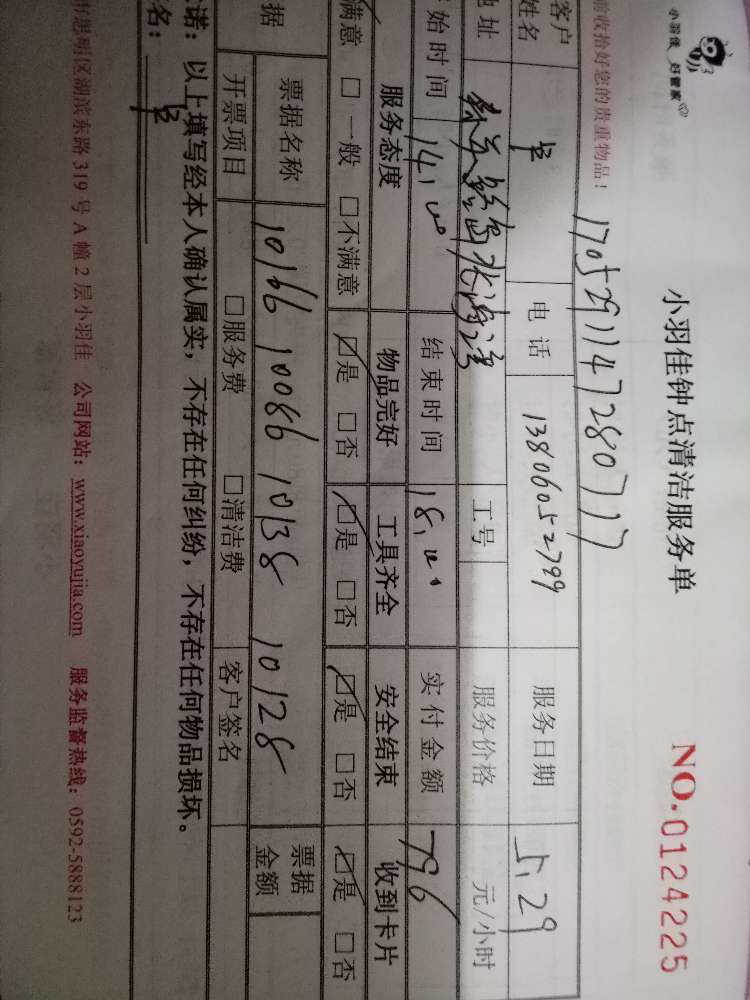 小羽佳 好管家
小羽佳钟点清洁服务单
NO.0124225
前收拾好您的贵重物品！
170529114728071 7
客户姓名 电话 13806052799 服务日期 5.29
地址 工号 服务价格 元/小时
始时间 14,00 结束时间 18,00 实付金额 796
服务态度 物品完好 工具齐全 安全结束 收到卡片
满意 □一般 □不满意 ☑是 □否 ☑是 □否 ☑是 □否 ☑是 □否
据 票据名称 10166 10086 10138 10128 票据金额
开票项目 □服务费 □清洁费 客户签名
诺：以上填写经本人确认属实，不存在任何纠纷，不存在任何物品损坏。
名：
市思明区湖滨东路 319 号 A 幢 2 层小羽佳 公司网站：www.xiaoyujia.com 服务监督热线：0592-5888123